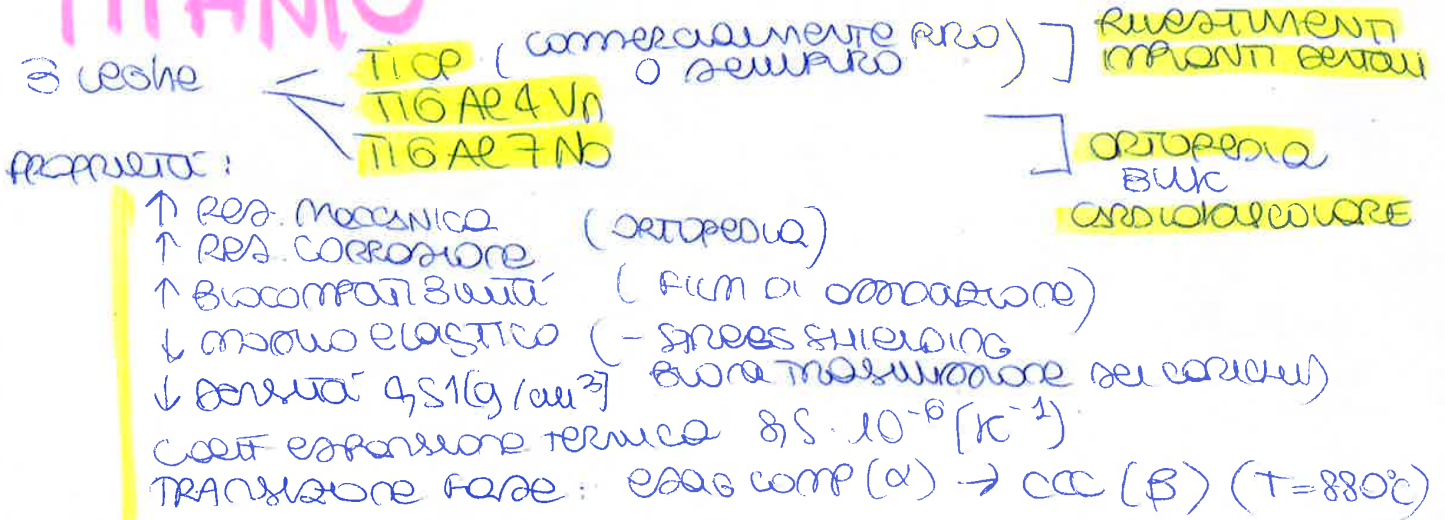 TITANIO
3 leghe
TiCP (commercialmente puro) ] RIVESTIMENTI
o semipuro IMPIANTI DENTALI
Ti6Al4Vn
Ti6Al7Nb ] ORTOPEDIA
PROPRIETÀ: BULK
CARDIOVASCOLARE
↑ RES. MECCANICA (ORTOPEDIA)
↑ RES. CORROSIONE
↑ BIOCOMPATIBILITÀ (FILM DI OSSIDAZIONE)
↓ MODULO ELASTICO (- STRESS SHIELDING
BUONA TRASMISSIONE DEI CARICHI)
↓ DENSITÀ 4,51 [g/cm³]
COEFF ESPANSIONE TERMICA 8,5 · 10⁻⁶ [K⁻¹]
TRANSIZIONE FASE: ESAG COMP (α) → CCC (β) (T=880°C)